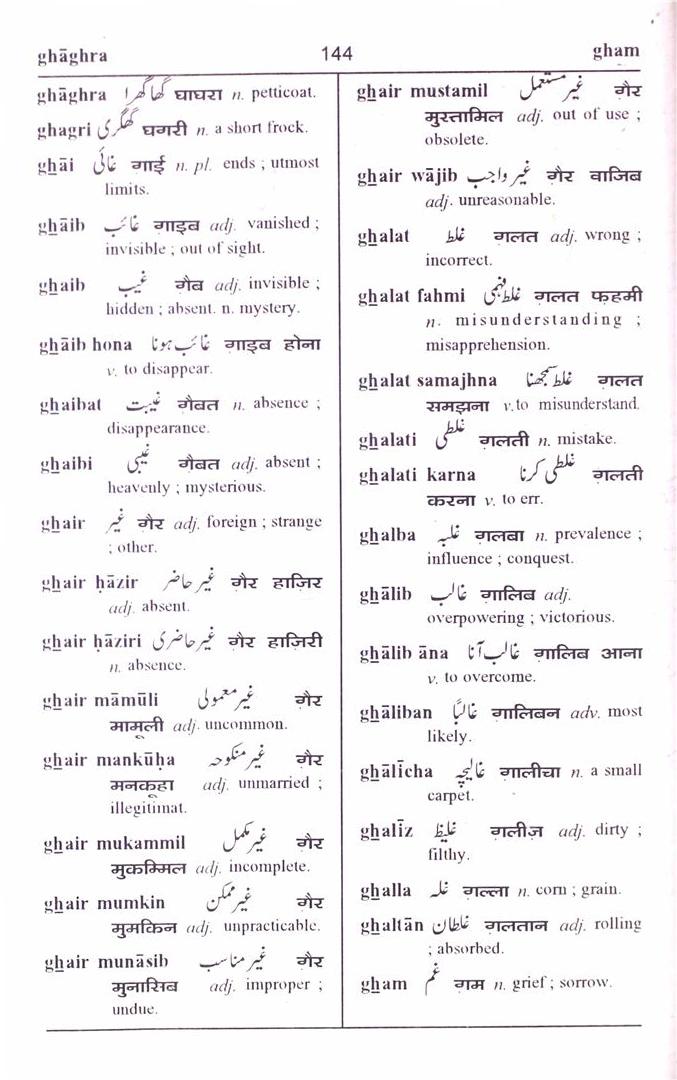 ghāghra 144 gham
ghāghra گھاگھرا घाघरा n. petticoat.
ghagri گھگری घगरी n. a short frock.
ghāi غائی ग़ाई n. pl. ends ; utmost
limits.
ghāib غائب ग़ाइब adj. vanished ;
invisible ; out of sight.
ghaib غیب ग़ैब adj. invisible ;
hidden ; absent. n. mystery.
ghāib hona غائب ہونا ग़ाइब होना
v. to disappear.
ghaibat غیبت ग़ैबत n. absence ;
disappearance.
ghaibi غیبی ग़ैबत adj. absent ;
heavenly ; mysterious.
ghair غیر ग़ैर adj. foreign ; strange
; other.
ghair ḥāzir غیر حاضر ग़ैर हाज़िर
adj. absent.
ghair ḥāziri غیر حاضری ग़ैर हाज़िरी
n. absence.
ghair māmūli غیر معمولی ग़ैर
मामूली adj. uncommon.
ghair mankūḥa غیر منکوحہ ग़ैर
मनकूहा adj. unmarried ;
illegitimat.
ghair mukammil غیر مکمل ग़ैर
मुकम्मिल adj. incomplete.
ghair mumkin غیر ممکن ग़ैर
मुमकिन adj. unpracticable.
ghair munāsib غیر مناسب ग़ैर
मुनासिब adj. improper ;
undue.
ghair mustamil غیر مستعمل ग़ैर
मुस्तामिल adj. out of use ;
obsolete.
ghair wājib غیر واجب ग़ैर वाजिब
adj. unreasonable.
ghalat غلط ग़लत adj. wrong ;
incorrect.
ghalat fahmi غلط فہمی ग़लत फ़हमी
n. misunderstanding ;
misapprehension.
ghalat samajhna غلط سمجھنا ग़लत
समझना v.to misunderstand.
ghalati غلطی ग़लती n. mistake.
ghalati karna غلطی کرنا ग़लती
करना v. to err.
ghalba غلبہ ग़लबा n. prevalence ;
influence ; conquest.
ghālib غالب ग़ालिब adj.
overpowering ; victorious.
ghālib āna غالب آنا ग़ालिब आना
v. to overcome.
ghāliban غالباً ग़ालिबन adv. most
likely.
ghālīcha غالیچہ ग़ालीचा n. a small
carpet.
ghalīz غلیظ ग़लीज़ adj. dirty ;
filthy.
ghalla غلہ ग़ल्ला n. corn ; grain.
ghaltān غلطان ग़लतान adj. rolling
; absorbed.
gham غم ग़म n. grief ; sorrow.